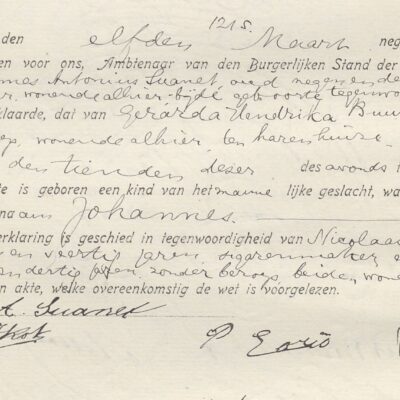 1215.
den elfden Maart neg
en voor ons, Ambtenaar van den Burgerlijken Stand der
mes Antonius Suanet, oud negen en de
r, wonende alhier, bij de geboorte tegenwo
klaarde, dat van Gerarda Hendrika Buu
ep, wonende alhier, ten harenhuize
den tienden dezer des avonds t
te is geboren een kind van het manne lijke geslacht, wa
na am Johannes.
erklaring is geschied in tegenwoordigheid van Nicolaas
en veertig jaren, sigarenmaker e
en dertig jaren, zonder beroep, beiden wone
n akte, welke overeenkomstig de wet is voorgelezen.
A. Suanet
Kok P